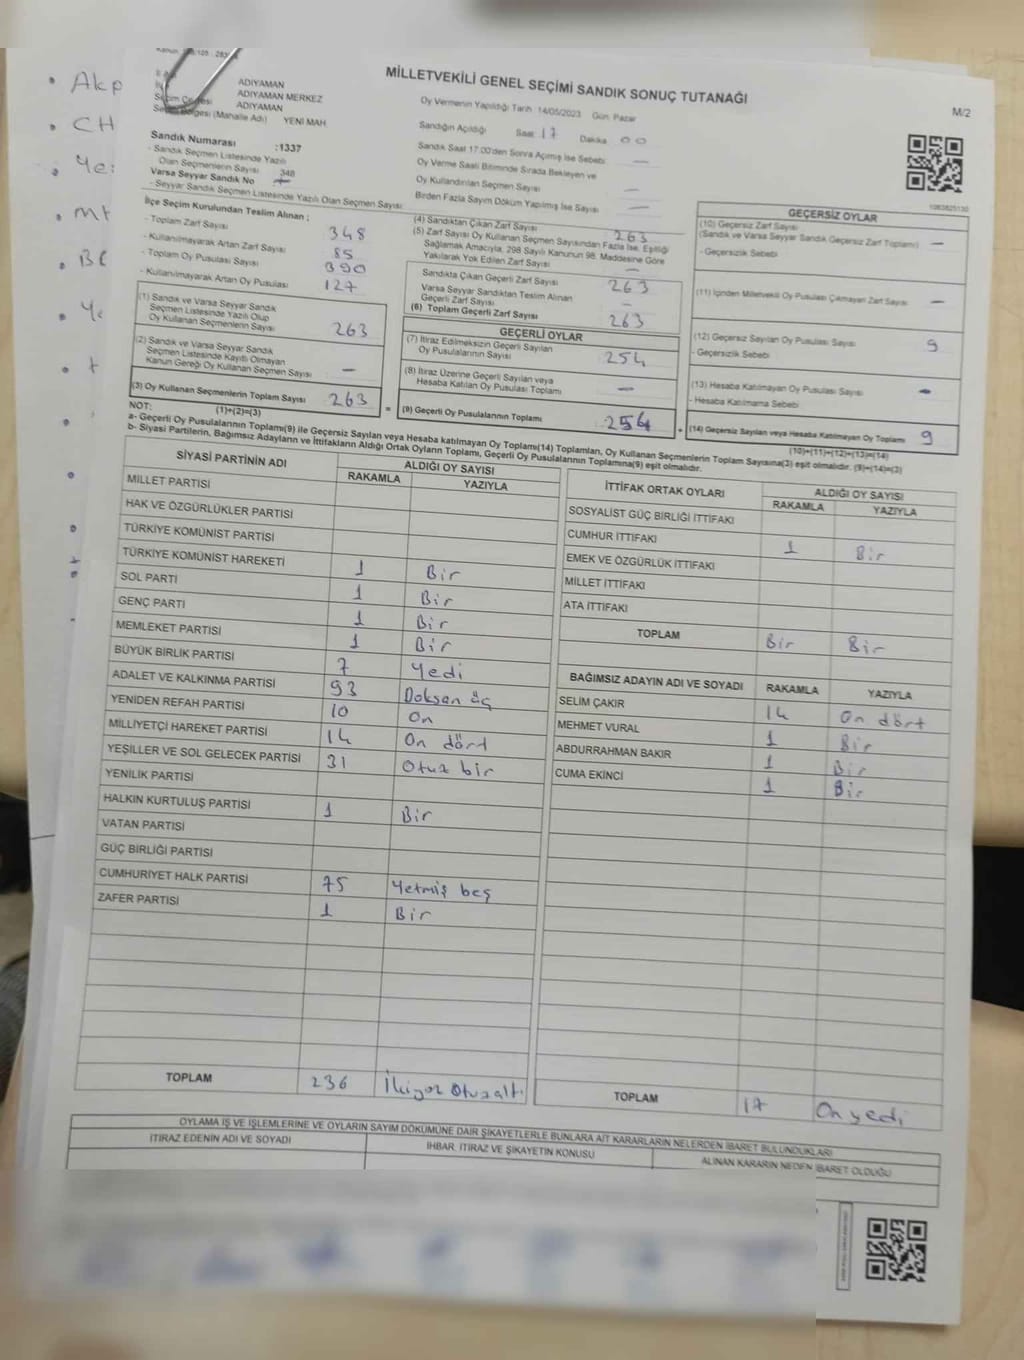 MİLLETVEKİLİ GENEL SEÇİMİ SANDIK SONUÇ TUTANAĞI
M/2
ADIYAMAN
ADIYAMAN MERKEZ
ADIYAMAN
Seçim Bölgesi (Mahalle Adı) YENİ MAH
Oy Vermenin Yapıldığı Tarih 14/05/2023 Gün Pazar
Sandığın Açıldığı Saat 17 Dakika 00
Sandık Saat 17.00'den Sonra Açmış İse Sebebi —
Oy Verme Saati Bitiminde Sırada Bekleyen ve
Oy Kullandırılan Seçmen Sayısı —
Birden Fazla Sayım Döküm Yapılmış İse Sayısı —
Sandık Numarası :1337
- Sandık Seçmen Listesinde Yazılı
Olan Seçmenlerin Sayısı 348
Varsa Seyyar Sandık No
- Seyyar Sandık Seçmen Listesinde Yazılı Olan Seçmen Sayısı
İlçe Seçim Kurulundan Teslim Alınan ;
- Toplam Zarf Sayısı 348
- Kullanılmayarak Artan Zarf Sayısı 85
- Toplam Oy Pusulası Sayısı 390
- Kullanılmayarak Artan Oy Pusulası 127
(1) Sandık ve Varsa Seyyar Sandık
Seçmen Listesinde Yazılı Olup
Oy Kullanan Seçmenlerin Sayısı 263
(2) Sandık ve Varsa Seyyar Sandık
Seçmen Listesinde Kayıtlı Olmayan
Kanun Gereği Oy Kullanan Seçmen Sayısı —
(3) Oy Kullanan Seçmenlerin Toplam Sayısı 263
(1)+(2)=(3)
(4) Sandıktan Çıkan Zarf Sayısı 263
(5) Zarf Sayısı Oy Kullanan Seçmen Sayısından Fazla İse, Eşitliği
Sağlamak Amacıyla, 298 Sayılı Kanunun 98. Maddesine Göre
Yakılarak Yok Edilen Zarf Sayısı —
Sandıkta Çıkan Geçerli Zarf Sayısı 263
Varsa Seyyar Sandıktan Teslim Alınan
Geçerli Zarf Sayısı —
(6) Toplam Geçerli Zarf Sayısı 263
GEÇERLİ OYLAR
(7) İtiraz Edilmeksizin Geçerli Sayılan
Oy Pusulalarının Sayısı 254
(8) İtiraz Üzerine Geçerli Sayılan veya
Hesaba Katılan Oy Pusulası Toplamı —
(9) Geçerli Oy Pusulalarının Toplamı 254
1083825130
GEÇERSİZ OYLAR
(10) Geçersiz Zarf Sayısı
(Sandık ve Varsa Seyyar Sandık Geçersiz Zarf Toplamı) —
- Geçersizlik Sebebi
(11) İçinden Milletvekili Oy Pusulası Çıkmayan Zarf Sayısı —
(12) Geçersiz Sayılan Oy Pusulası Sayısı 9
- Geçersizlik Sebebi
(13) Hesaba Katılmayan Oy Pusulası Sayısı —
- Hesaba Katılmama Sebebi
(14) Geçersiz Sayılan veya Hesaba Katılmayan Oy Toplamı 9
(10)+(11)+(12)+(13)=(14)
NOT:
a- Geçerli Oy Pusulalarının Toplamı(9) ile Geçersiz Sayılan veya Hesaba katılmayan Oy Toplamı(14) Toplamları, Oy Kullanan Seçmenlerin Toplam Sayısına(3) eşit olmalıdır. (9)+(14)=(3)
b- Siyasi Partilerin, Bağımsız Adayların ve İttifakların Aldığı Ortak Oyların Toplamı, Geçerli Oy Pusulalarının Toplamına(9) eşit olmalıdır.
SİYASİ PARTİNİN ADI
ALDIĞI OY SAYISI
RAKAMLA YAZIYLA
MİLLET PARTİSİ
HAK VE ÖZGÜRLÜKLER PARTİSİ
TÜRKİYE KOMÜNİST PARTİSİ
TÜRKİYE KOMÜNİST HAREKETİ 1 Bir
SOL PARTİ 1 Bir
GENÇ PARTİ 1 Bir
MEMLEKET PARTİSİ 1 Bir
BÜYÜK BİRLİK PARTİSİ 7 Yedi
ADALET VE KALKINMA PARTİSİ 93 Doksan üç
YENİDEN REFAH PARTİSİ 10 On
MİLLİYETÇİ HAREKET PARTİSİ 14 On dört
YEŞİLLER VE SOL GELECEK PARTİSİ 31 Otuz bir
YENİLİK PARTİSİ
HALKIN KURTULUŞ PARTİSİ 1 Bir
VATAN PARTİSİ
GÜÇ BİRLİĞİ PARTİSİ
CUMHURİYET HALK PARTİSİ 75 Yetmiş beş
ZAFER PARTİSİ 1 Bir
TOPLAM 236 İkiyüz Otuzaltı
İTTİFAK ORTAK OYLARI
ALDIĞI OY SAYISI
RAKAMLA YAZIYLA
SOSYALİST GÜÇ BİRLİĞİ İTTİFAKI
CUMHUR İTTİFAKI 1 Bir
EMEK VE ÖZGÜRLÜK İTTİFAKI
MİLLET İTTİFAKI
ATA İTTİFAKI
TOPLAM Bir Bir
BAĞIMSIZ ADAYIN ADI VE SOYADI RAKAMLA YAZIYLA
SELİM ÇAKIR 14 On dört
MEHMET VURAL 1 Bir
ABDURRAHMAN BAKIR 1 Bir
CUMA EKİNCİ 1 Bir
TOPLAM 17 On yedi
OYLAMA İŞ VE İŞLEMLERİNE VE OYLARIN SAYIM DÖKÜMÜNE DAİR ŞİKAYETLERLE BUNLARA AİT KARARLARIN NELERDEN İBARET BULUNDUKLARI
İTİRAZ EDENİN ADI VE SOYADI
İHBAR, İTİRAZ VE ŞİKAYETİN KONUSU
ALINAN KARARIN NEDEN İBARET OLDUĞU
Akp
CH